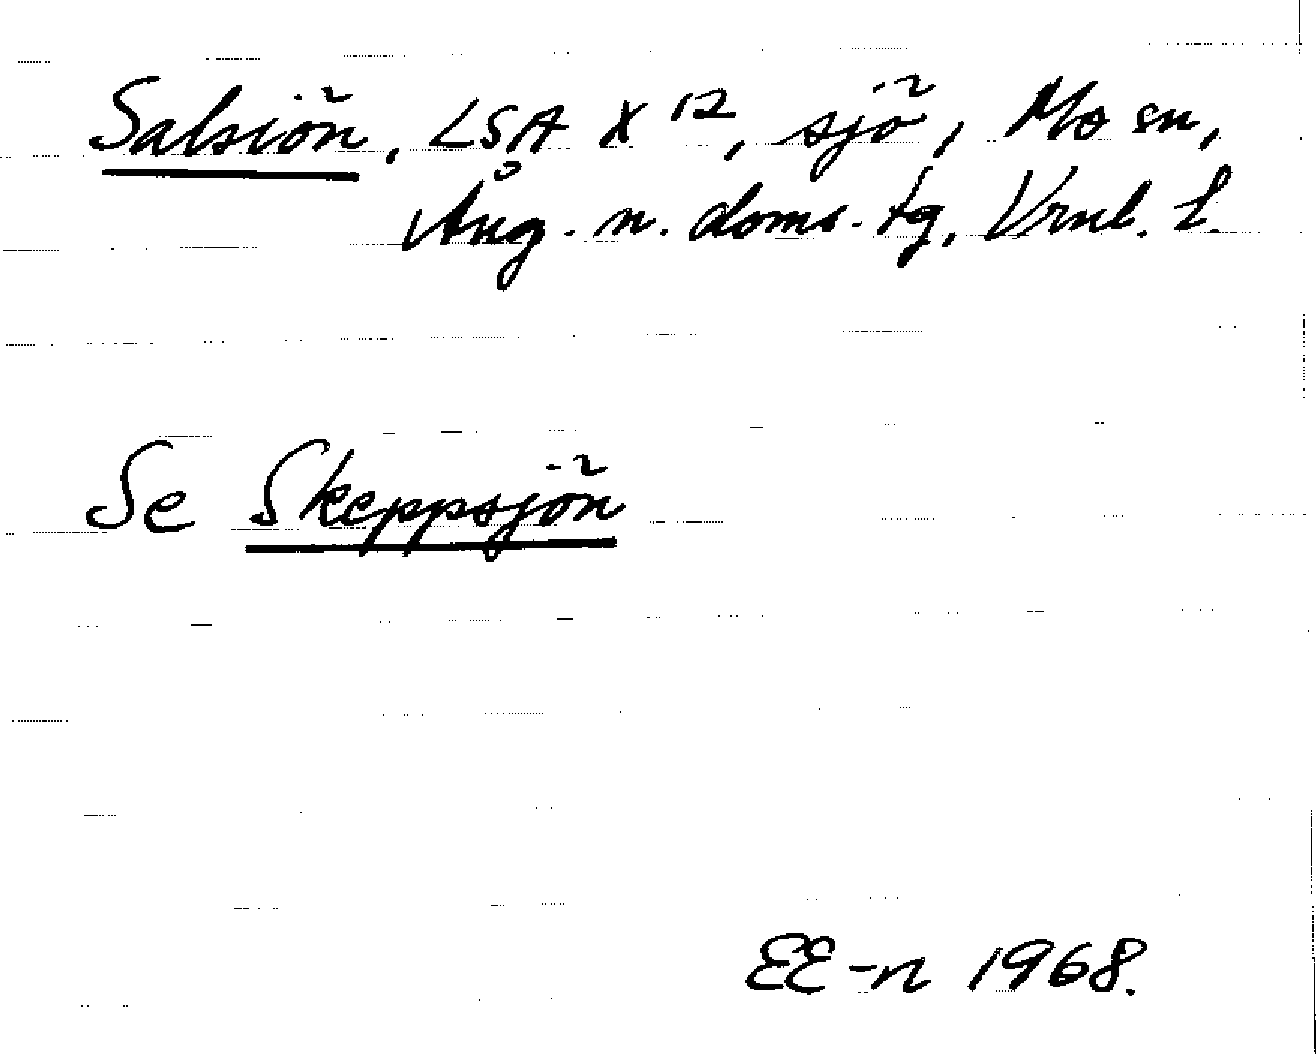 Salsiön, LSA X 12, sjö, Mo sn,
Ång. n. doms. tg, Vrnl. L.
Se Skeppsjön
EE-n 1968.